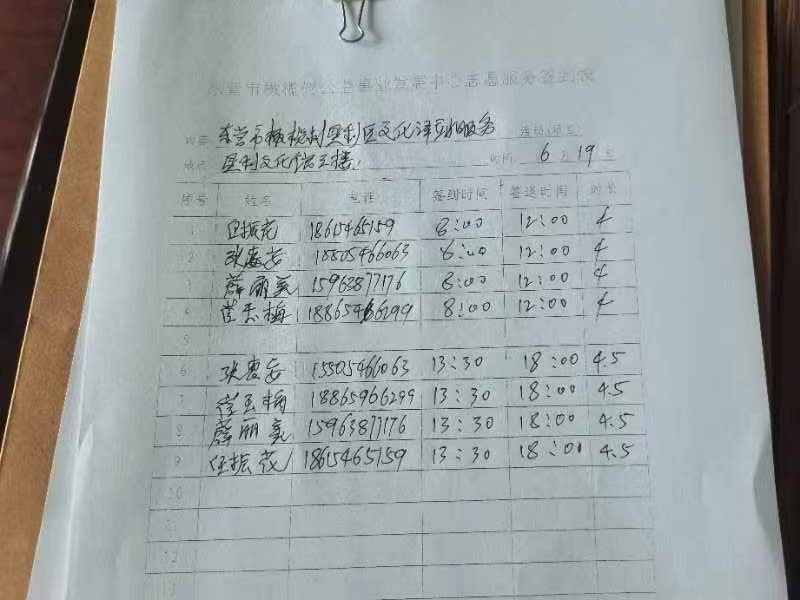 东营市橄榄树公益事业发展中心志愿服务签到表
内容 东营市橄榄树垦利区文化 服务
地点 垦利文化馆三楼 时间 6月19号
序号 姓名 电话 签到时间 签退时间 时长
1 任振花 18615465159 8:00 12:00 4
2 张惠芳 18805466063 8:00 12:00 4
3 薛丽美 15963877176 8:00 12:00 4
4 崔玉梅 18865466299 8:00 12:00 4
5
6 张惠芳 15505466063 13:30 18:00 4.5
7 崔玉梅 18865966299 13:30 18:00 4.5
8 薛丽美 15963877176 13:30 18:00 4.5
9 任振花 18615465159 13:30 18:00 4.5
10
11
12
13